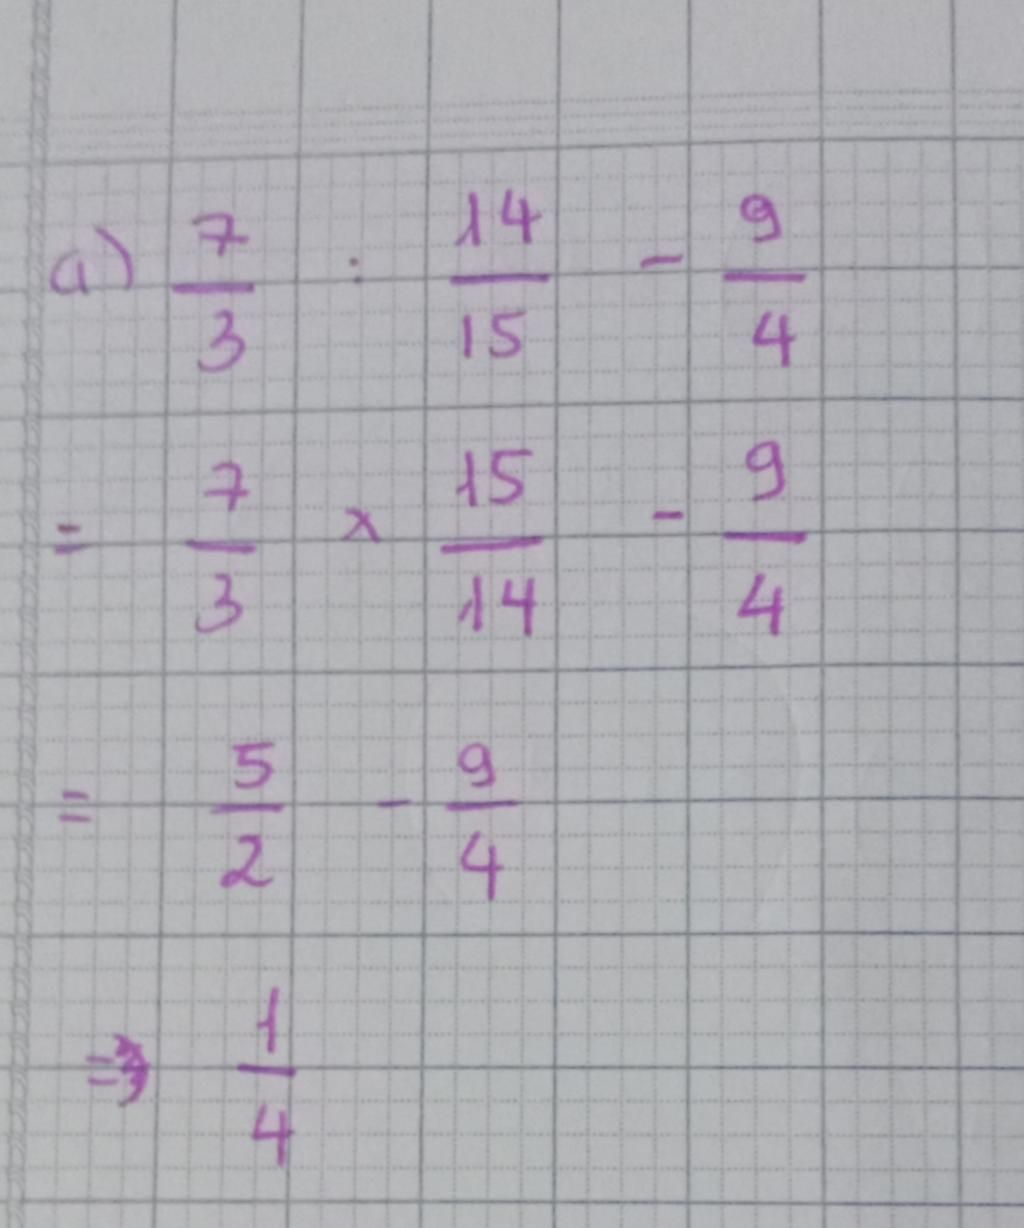 a) 7/3 : 14/15 - 9/4
= 7/3 x 15/14 - 9/4
= 5/2 - 9/4
=> 1/4